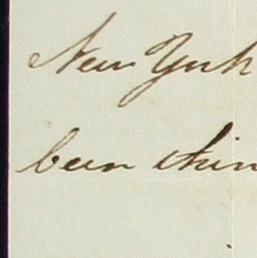 New York
been thin